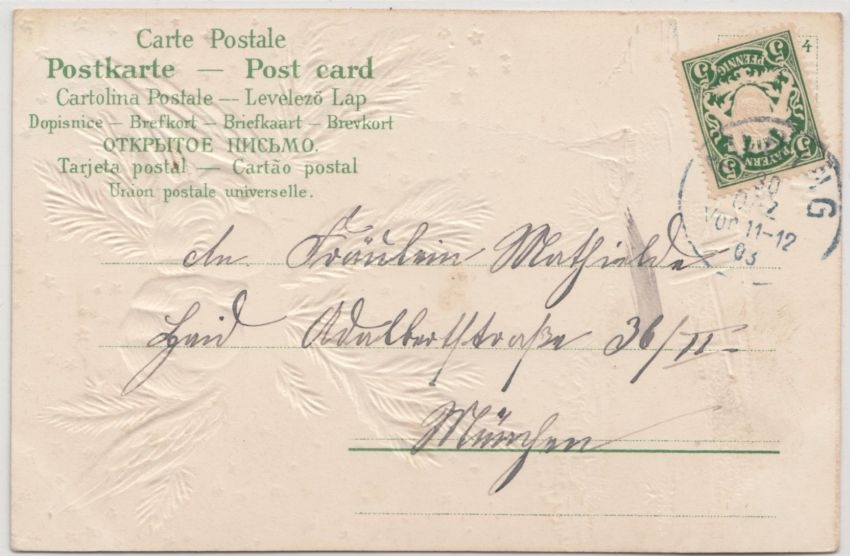 Carte Postale
Postkarte — Post card
Cartolina Postale — Levelező Lap
Dopisnice — Brefkort — Briefkaart — Brevkort
ОТКРЫТОЕ ПИСЬМО.
Tarjeta postal — Cartão postal
Union postale universelle.
4
5 PFENNIG 5
5 BAYERN 5
30
Vor. 11-12
03
An. Fräulein Mathielde
Haid Adalbertstraße 36/II
München